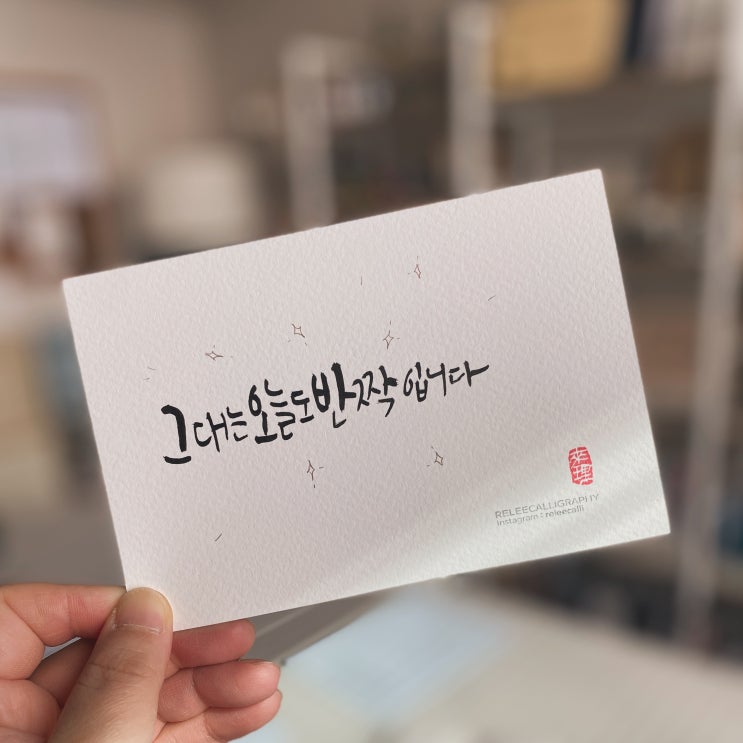 그대는 오늘도 반짝입니다
RELEECALLIGRAPHY
Instagram : releecalli